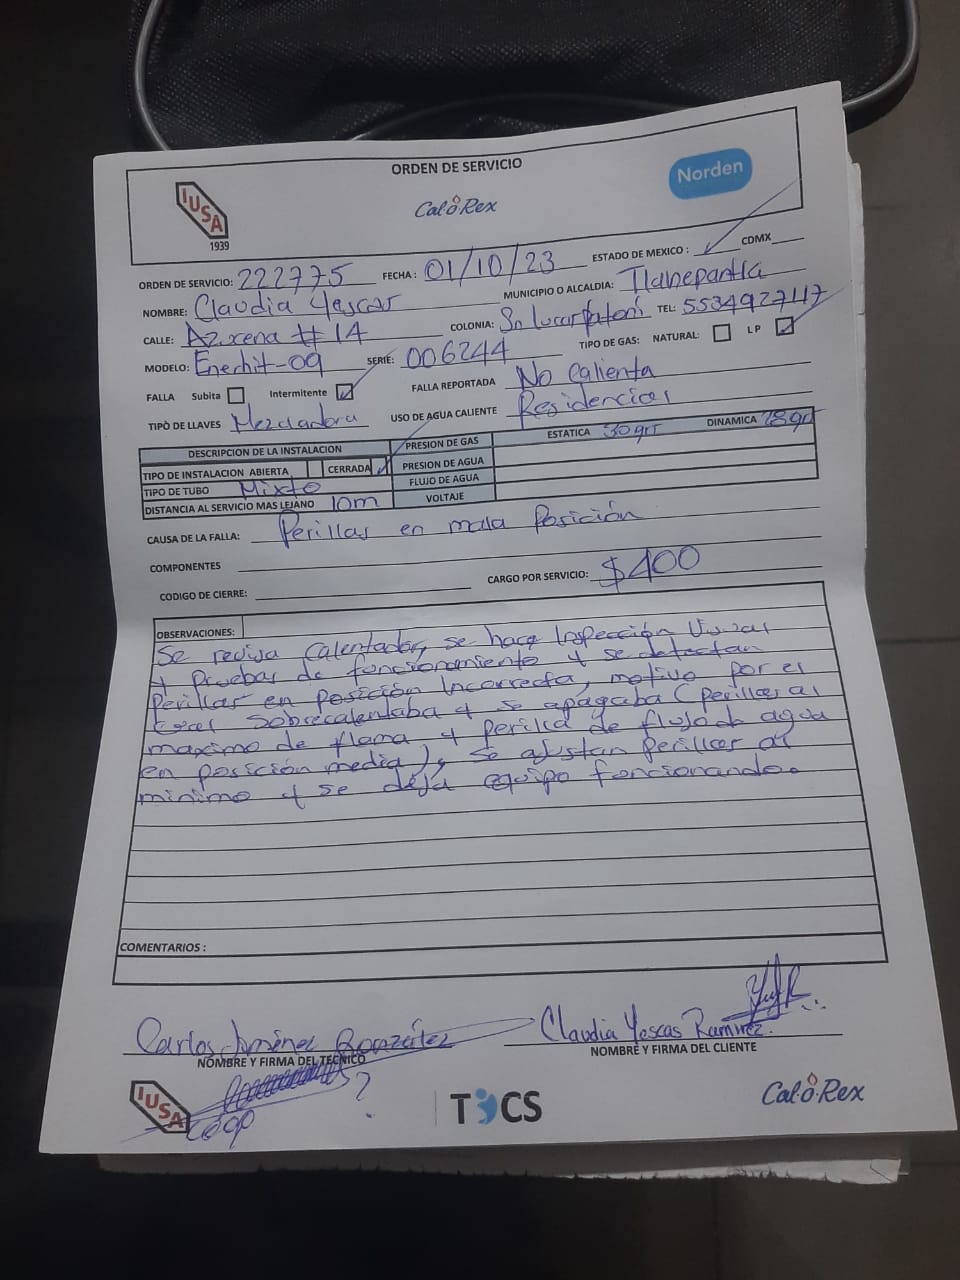 ORDEN DE SERVICIO
IUSA
1939
Cal-o-Rex
Norden
ORDEN DE SERVICIO: 222775 FECHA: 01/10/23 ESTADO DE MEXICO: ✓ CDMX
NOMBRE: Claudia Yescas MUNICIPIO O ALCALDIA: Tlalnepantla
CALLE: Azucena # 14 COLONIA: Sn Lucas Patoni TEL: 5534927117
MODELO: Enerhit-09 SERIE: 006244 TIPO DE GAS: NATURAL: LP ✓
FALLA Subita Intermitente ✓ FALLA REPORTADA No Calienta
TIPO DE LLAVES Mezcladora USO DE AGUA CALIENTE Residencial
DESCRIPCION DE LA INSTALACION PRESION DE GAS ESTATICA 30grs DINAMICA 28gr
TIPO DE INSTALACION ABIERTA CERRADA ✓ PRESION DE AGUA
TIPO DE TUBO Mixto FLUJO DE AGUA
DISTANCIA AL SERVICIO MAS LEJANO 10m VOLTAJE
CAUSA DE LA FALLA: Perillas en mala Posición
COMPONENTES
CODIGO DE CIERRE: CARGO POR SERVICIO: $400
OBSERVACIONES:
Se revisa Calentador, se hace Inspección Visual
y Pruebas de funcionamiento y se detectan
Perillas en Posición Incorrecta, motivo por el
cual Sobrecalentaba y se apagaba (Perillas al
maximo de flama y perilla de flujo de agua
en posición media), se ajustan perillas al
minimo y se deja equipo funcionando.
COMENTARIOS :
Carlos Jiménez González
NOMBRE Y FIRMA DEL TECNICO
Claudia Yescas Ramirez.
NOMBRE Y FIRMA DEL CLIENTE
IUSA
TICS
Cal-o-Rex